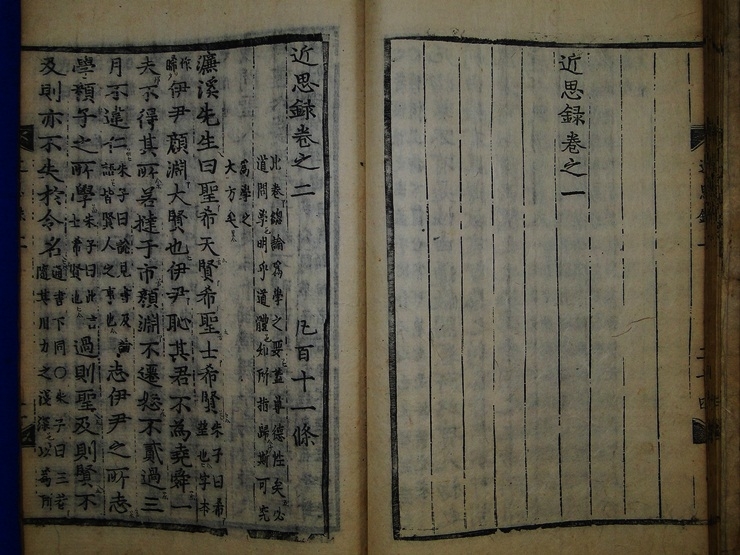 近思録卷之一
近思録卷之二 凡百十一條
此卷緫論為學之要盖尊德性矣必
道問學明乎道體知所指歸斯可究
為學之
大方矣
濂溪先生曰聖希天賢希聖士希賢朱子曰希
望也字本
作
睎伊尹顔淵大賢也伊尹恥其君不為堯舜一
夫不得其所若撻于市顔淵不遷怒不貳過三
月不違仁朱子曰說見書及論
語皆賢人之事也志伊尹之所志
學顔子之所學朱子曰此言
士希賢也過則聖及則賢不
及則亦不失於令名通書下同○朱子曰三者
隨其用力之淺深以為所